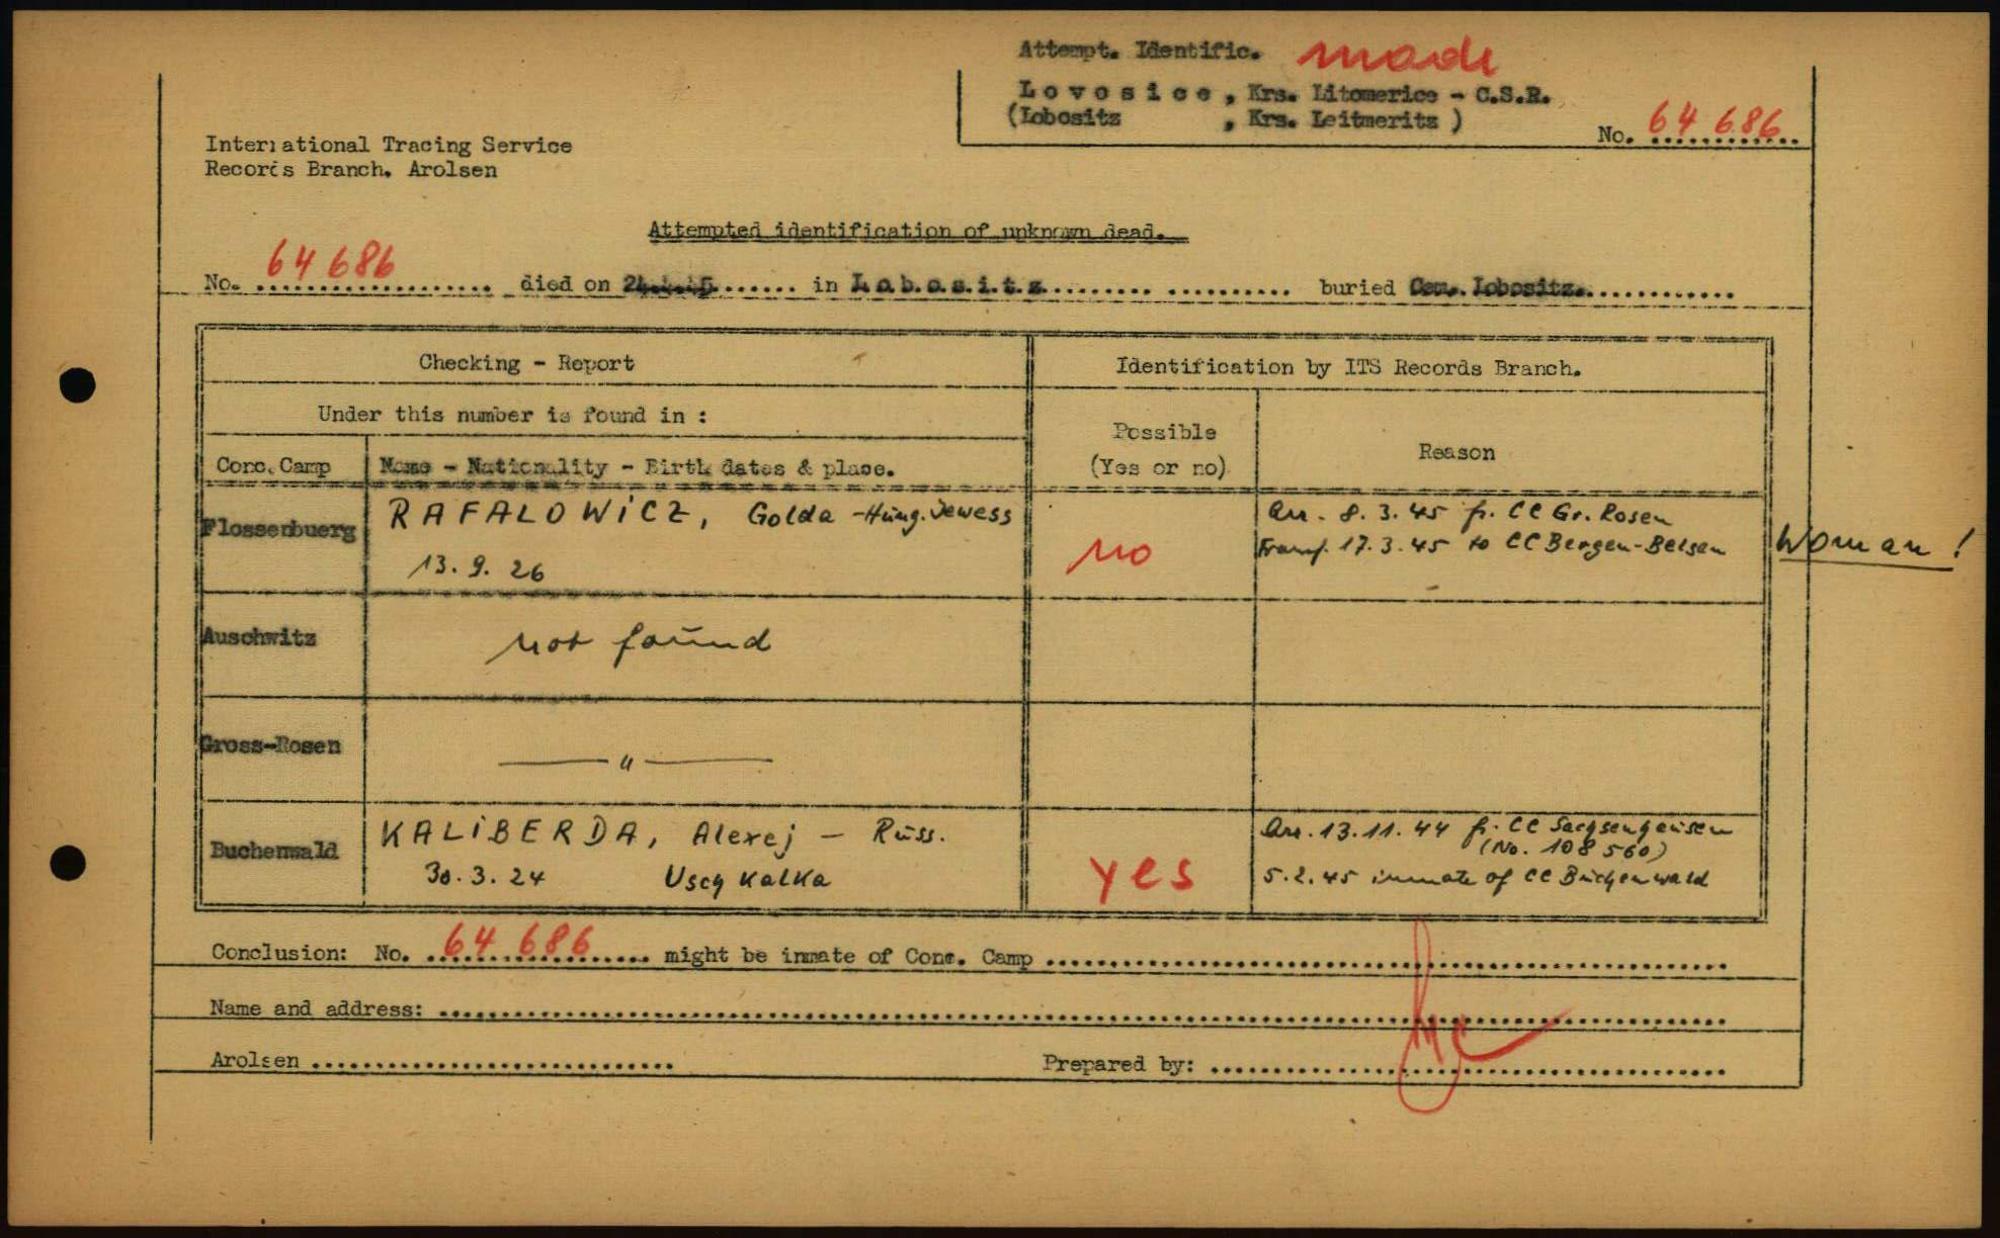 Attempt. Identific. made
Lovosice, Krs. Litomerice - C.S.R.
(Lobositz , Krs. Leitmeritz )
No. 64 686
International Tracing Service
Records Branch. Arolsen
Attempted identification of unknown dead.
No. 64 686 died on in Lobositz buried Cem. Lobositz.
Checking - Report
Identification by ITS Records Branch.
Under this number is found in :
Possible
(Yes or no)
Reason
Conc. Camp
Name - Nationality - Birth dates & place.
Flossenbuerg
RAFALOWICZ, Golda - Hung. Jewess
13. 9. 26
no
Arr. 8. 3. 45 fr. CC Gr. Rosen
Transf. 17. 3. 45 to CC Bergen-Belsen
Woman !
Auschwitz
not found
Gross-Rosen
— " —
Buchenwald
KALIBERDA, Alexej - Russ.
30. 3. 24 Usch Kalka
yes
Arr. 13. 11. 44 fr. CC Sachsenhausen
(No. 108 560)
5. 2. 45 inmate of CC Buchenwald
Conclusion: No. 64 686 might be inmate of Conc. Camp
Name and address:
Arolsen
Prepared by: